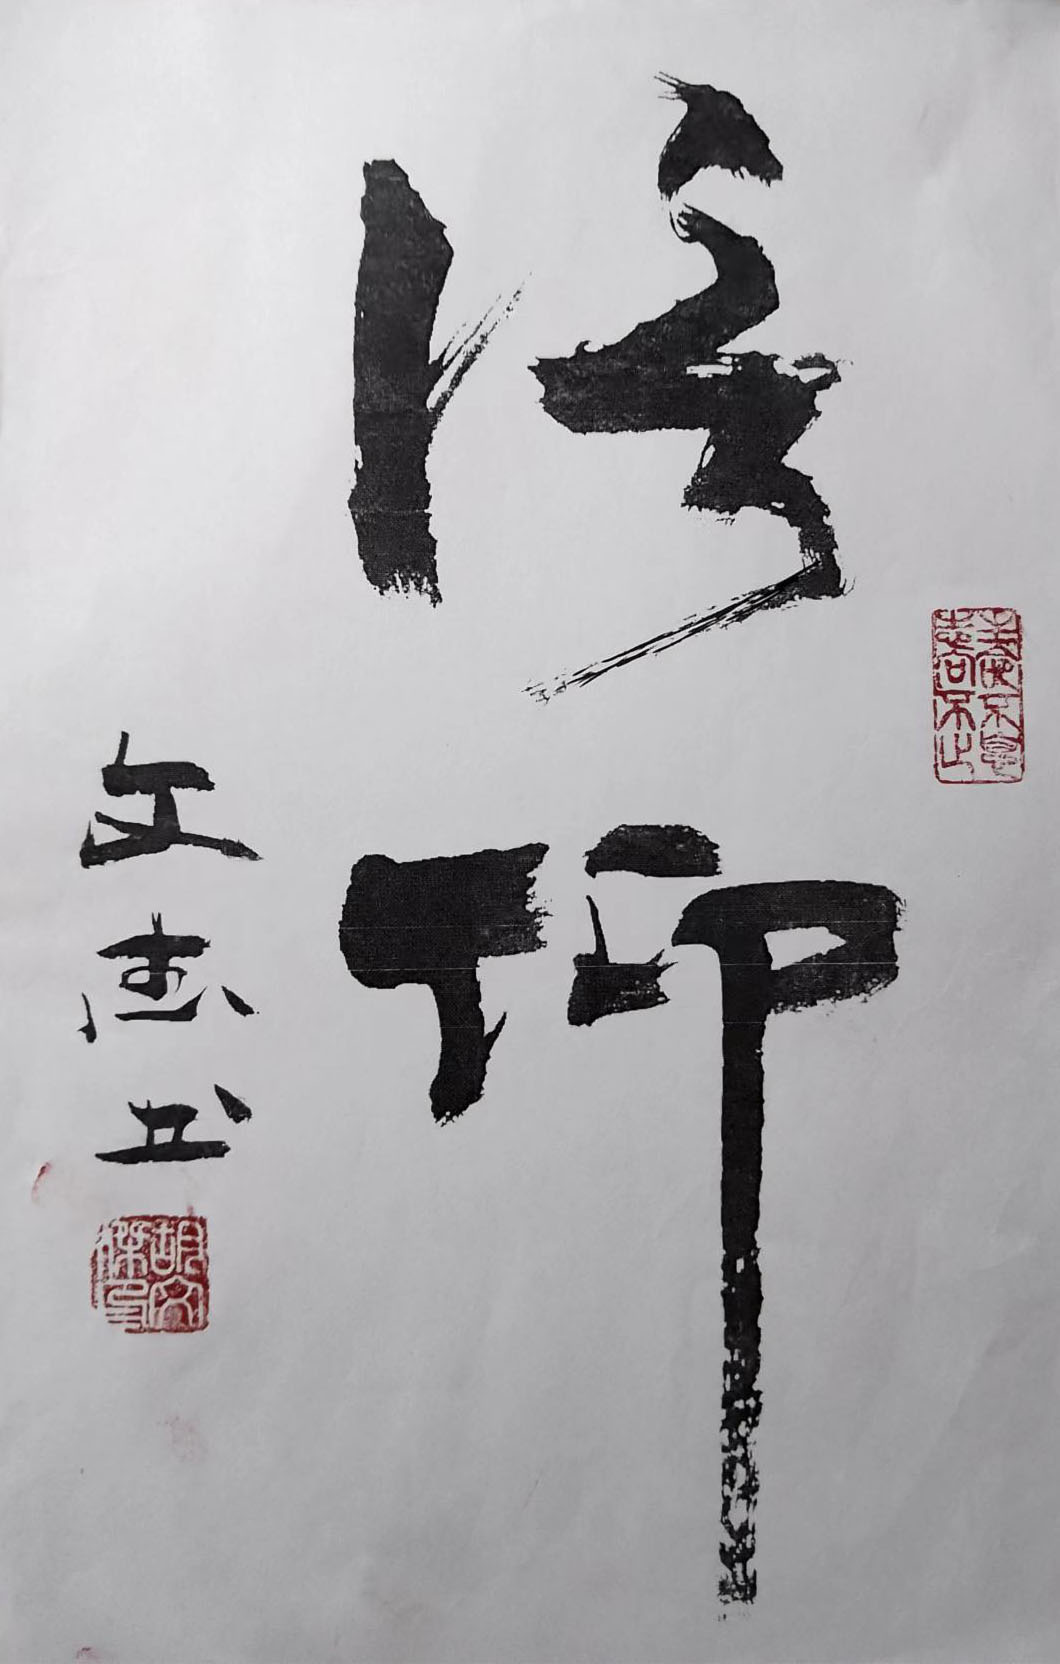 信仰
文杰书
胡文傑印